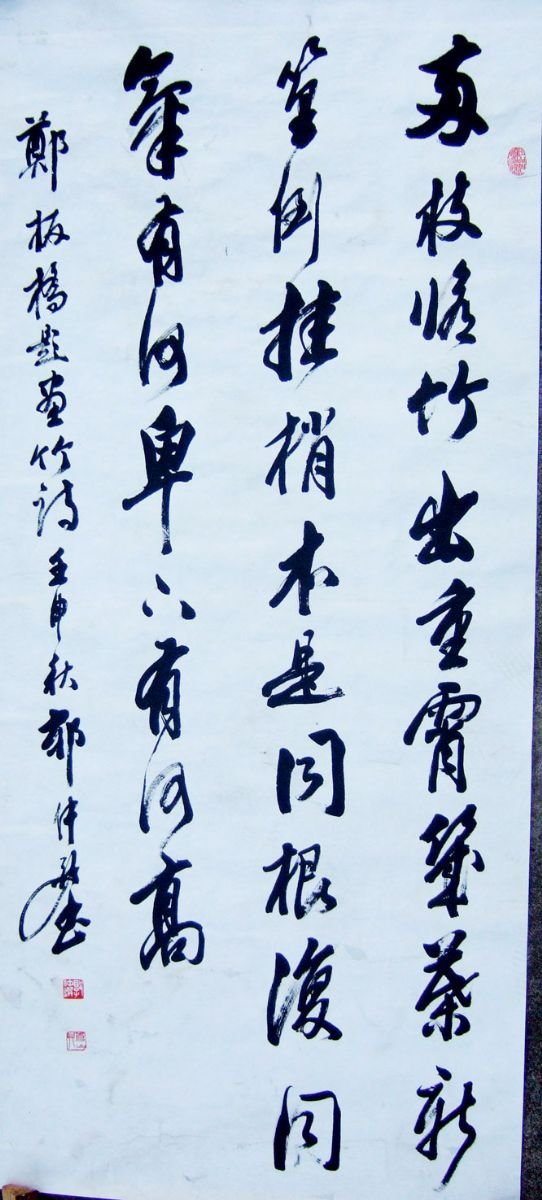 兩枝脩竹出重霄幾葉新
篁倒挂梢本是同根復同
氣有何卑下有何高
鄭板橋題畫竹詩壬申秋仲書